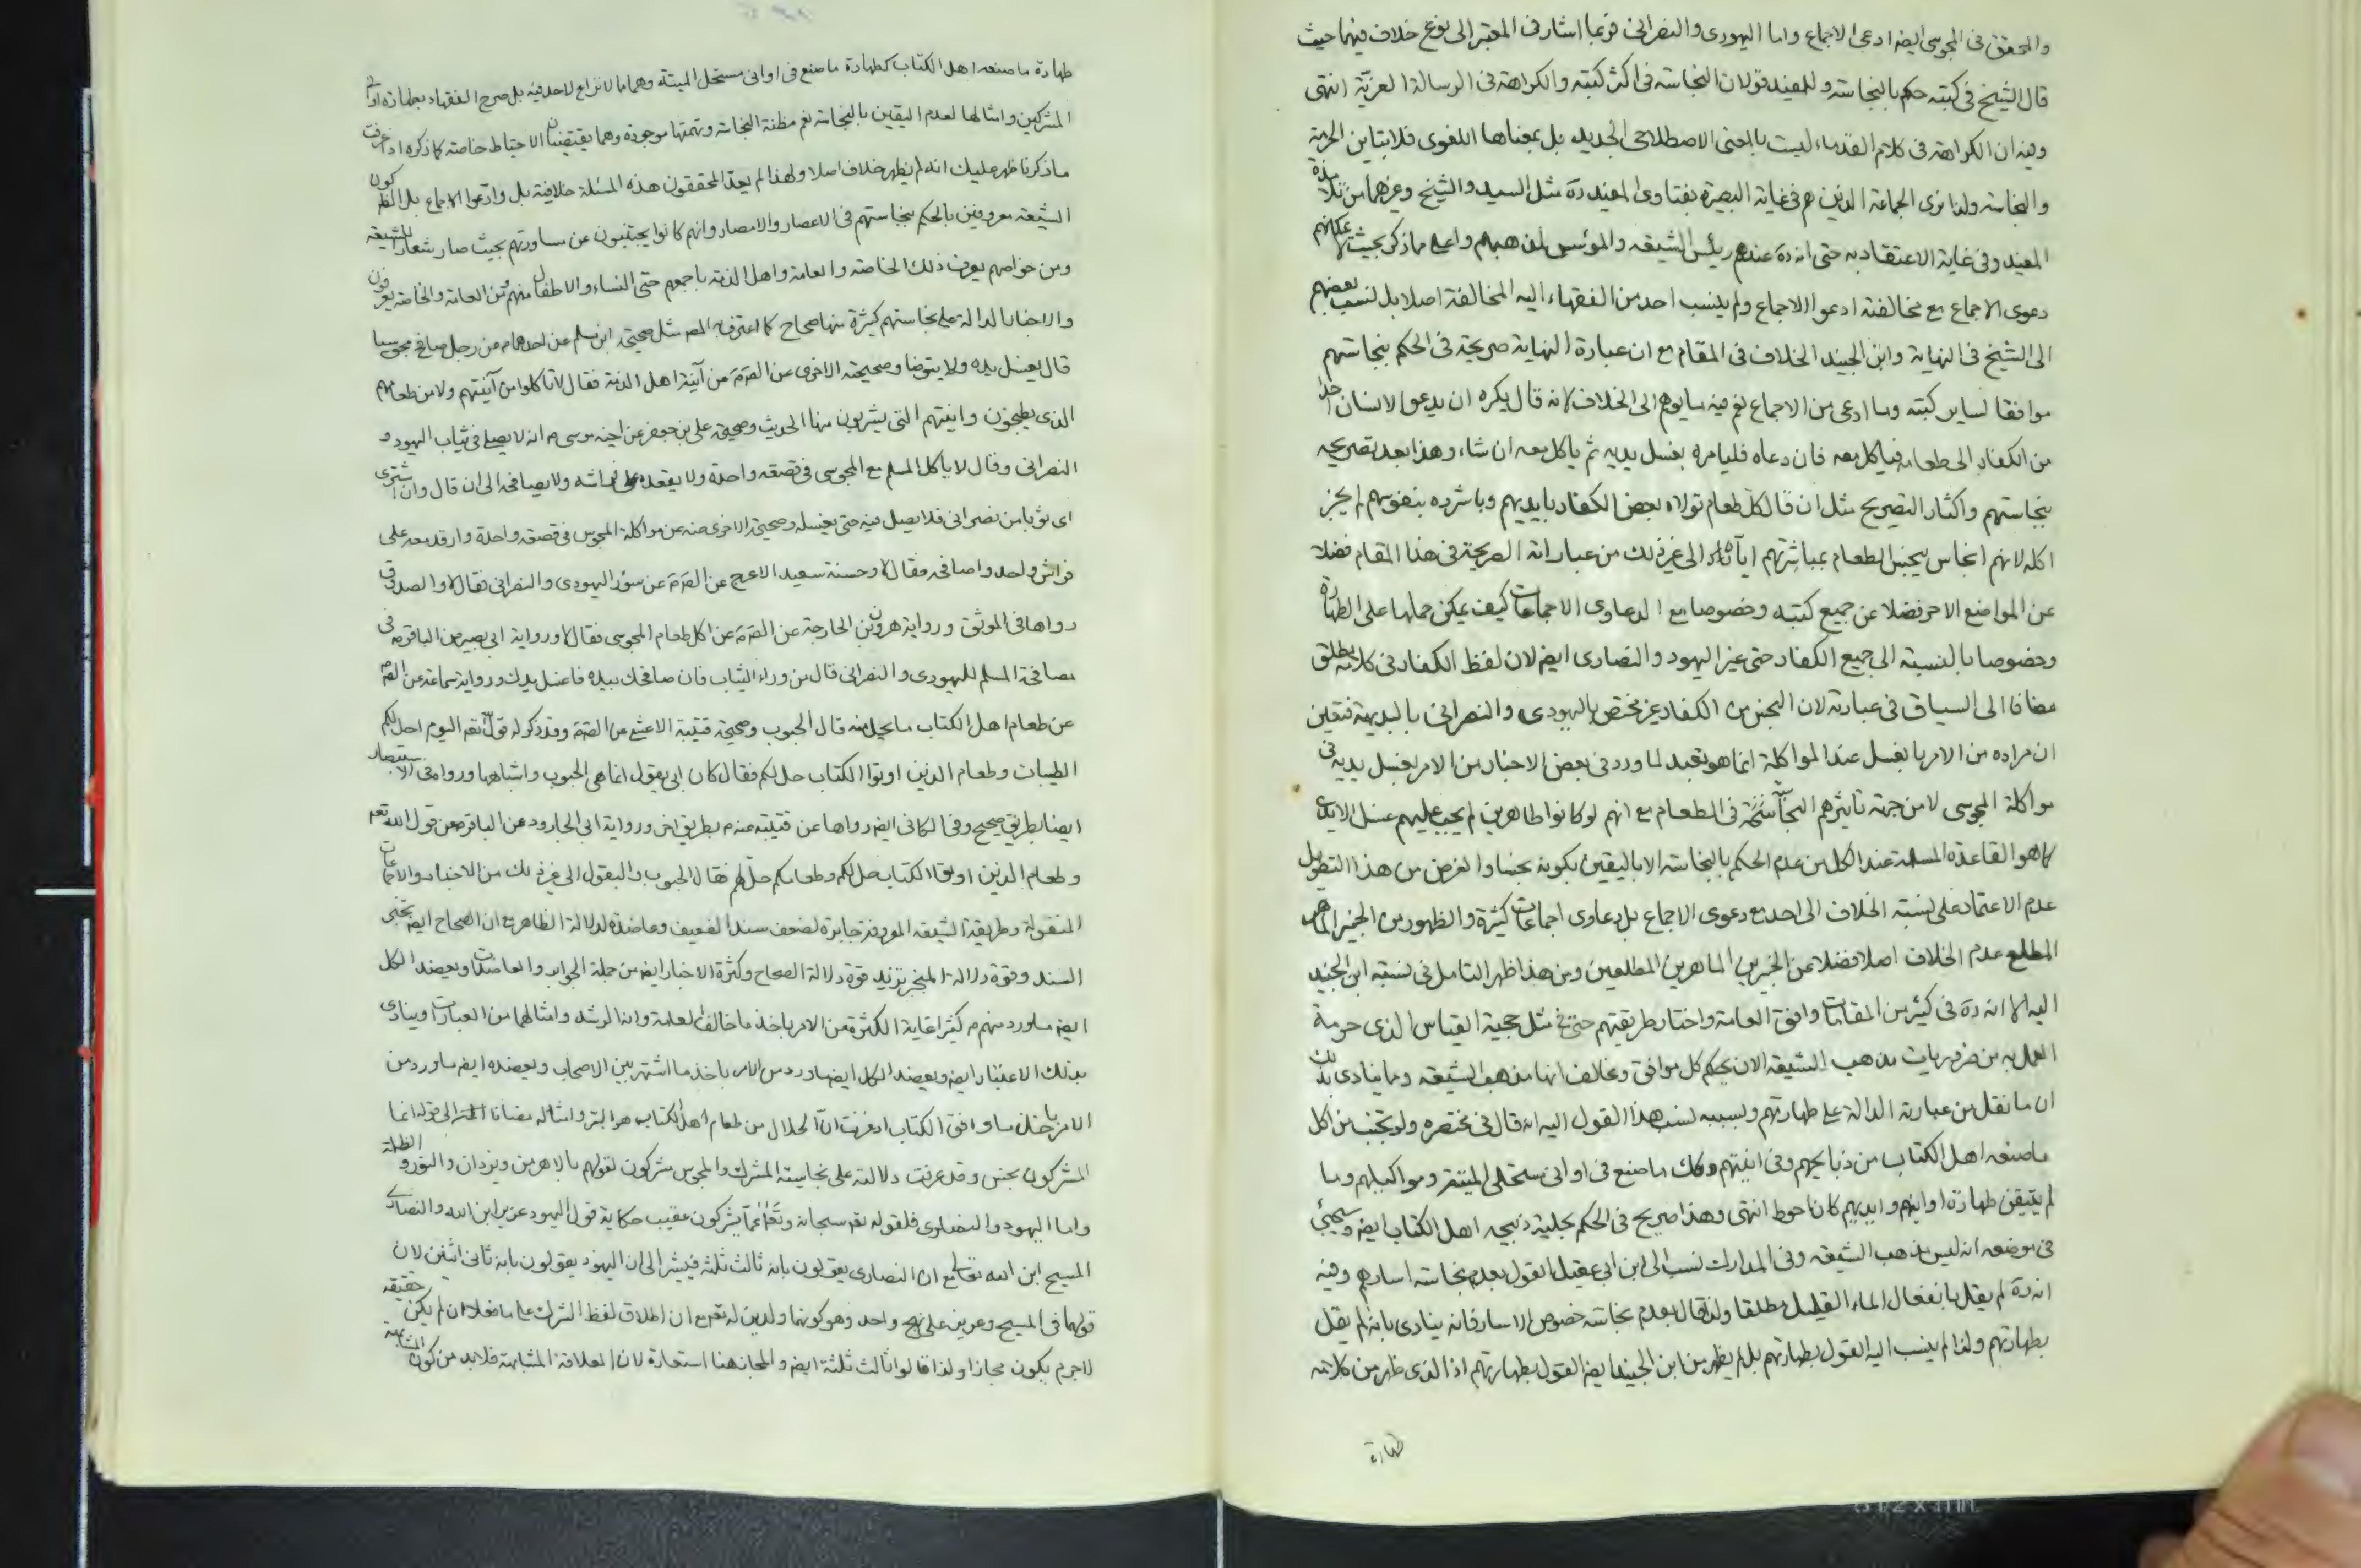 والمحقق فى المجوسى ايضا ادعى الاجماع واما اليهودى والنصرانى فربما اشار فى المعتبر الى نوع خلاف فيهما حيث
قال الشيخ فى كتبه حكم بالنجاسة وللمفيد قولان النجاسة فى اكثر كتبه والكراهة فى الرسالة الغرية انتهى
وفيه ان الكراهة فى كلام القدماء ليست بالمعنى الاصطلاحى الجديد بل بمعناها اللغوى فلا يتباين الحرمة
والنجاسة ولذا نرى الجماعة الذين هم فى غاية البصيرة بفتاوى المفيد ره مثل السيد والشيخ وغيرهما من تلامذة
المفيد وفى غاية الاعتقاد به حتى انه ره عندهم رئيس الشيعه والمؤسس لمذهبهم واعلى مما ذكر بحيث لا يمكنهم
دعوى الاجماع مع مخالفته ادعوا الاجماع ولم ينسب احد من الفقهاء اليه المخالفة اصلا بل نسب بعضهم
الى الشيخ فى النهاية وابن الجنيد الخلاف فى المقام مع ان عبارة النهاية صريحة فى الحكم بنجاستهم
موافقا لساير كتبه وما ادعى من الاجماع نعم فيه ما يوهم الى الخلاف لانه قال يكره ان يدعو الانسان احدا
من الكفار الى طعامه فياكل معه فان دعاه فليامره بغسل يديه ثم ياكل معه ان شاء وهذا بعد تصريحه
بنجاستهم واكثار التصريح مثل ان قال كل طعام تولاه بعض الكفار بايديهم وباشروه بنفوسهم لم يجز
اكله لانهم انجاس ينجس الطعام بمباشرتهم اياه الى غير ذلك من عباراته الصريحة فى هذا المقام فضلا
عن المواضع الاخر فضلا عن جميع كتبه وخصوصا مع الدعاوى الاجماعات كيف يمكن حملها على الطهارة
وخصوصا بالنسبة الى جميع الكفار حتى غير اليهود والنصارى ايضا لان لفظ الكفار فى كلامه مطلق
مضافا الى السياق فى عبارته لان النجس من الكفار غير مختص باليهودى والنصرانى بالبديهة فتعين
ان مراده من الامر بالغسل عند المواكلة انما هو تعبد لما ورد فى بعض الاخبار من الامر بغسل يديه فى
مواكلة المجوسى لا من جهة تاثيرهم النجاسة فى الطعام مع انهم لو كانوا طاهرين لم يجب عليهم غسل الايدى
كما هو القاعدة المسلمة عند الكل من عدم الحكم بالنجاسة الا باليقين بكونه نجسا والغرض من هذا التطويل
عدم الاعتماد على نسبة الخلاف الى احد مع دعوى الاجماع بل دعاوى اجماعات كثيرة والظهور من الخبير الماهر
المطلع عدم الخلاف اصلا فضلا عن الخبيرين الماهرين المطلعين ومن هذا ظهر التامل فى نسبة ابن الجنيد
اليه الا انه ره فى كثير من المقامات وافق العامة واختار طريقتهم حتى فى مثل حجية القياس الذى حرمة
العمل به من ضروريات مذهب الشيعه الان بحكم كل موافق ومخالف انها من مذهب الشيعه ومما ينادى بذلك
ان ما نقل من عبارته الدالة على طهارتهم وبسببه نسب هذا القول اليه انه قال فى مختصره ولو تجنب من اكل
ما صنعه اهل الكتاب من ذبايحهم وفى انيتهم وكك ما صنع فى اوانى مستحلى الميتة ومواكيلهم وما
لم يتيقن طهارة اوانيهم وايديهم كان احوط انتهى وهذا صريح فى الحكم بحلية ذبيحه اهل الكتاب ايضا وسيجئ
فى موضعه انه ليس مذهب الشيعه وفى المدارك نسب الى ابن ابى عقيل القول بعدم نجاسة اسارهم وفيه
انه ره لم يقل بانفعال الماء القليل مطلقا ولذا قال بعدم نجاسة خصوص الاسار فانه ينادى بانه لم يقل
بطهارتهم ولذا لم ينسب اليه القول بطهارتهم بل لم يظهر من ابن الجنيد ايضا القول بطهارتهم اذ الذى ظهر من كلامه
طهارة
طهارة ما صنعه اهل الكتاب كطهارة ما صنع فى اوانى مستحل الميتة وهما مما لا نزاع لاحد فيه بل صرح الفقهاء بطهارة اوانى
المشركين وامثالها لعدم اليقين بالنجاسة نعم مظنة النجاسة وتهمتها موجودة وهما يقتضيان الاحتياط خاصة كما ذكره اذا عرفت
ما ذكرنا ظهر عليك انه لم يظهر خلاف اصلا ولهذا لم يعد المحققون هذه المسئلة خلافية بل وادعوا الاجماع بل الظاهر كون
الشيعه معروفين بالحكم بنجاستهم فى الاعصار والامصار وانهم كانوا يجتنبون عن مساورتهم بحيث صار شعارا للشيعه
ومن خواصهم يعرف ذلك الخاصة والعامة واهل الذمة باجمعهم حتى النساء والاطفال منهم ومن العامة والخاصة يعرفون
والاخبار الدالة على نجاستهم كثيرة منها صحاح كما اعترف به المص مثل صحيحة ابن مسلم عن احدهما من رجل صافح مجوسيا
قال يغسل يده ولا يتوضا وصحيحته الاخرى عن الصم عن آنية اهل الذمة فقال لا تاكلوا من آنيتهم ولا من طعامهم
الذى يطبخون وانيتهم التى يشربون منها الحديث وصحيحة على بن جعفر عن اخيه موسى م انه لا يصلى فى ثياب اليهود و
النصرانى وقال لا ياكل المسلم مع المجوسى فى قصعة واحدة ولا يقعده على فراشه ولا يصافحه الى ان قال وان اشترى
اى ثوبا من نصرانى فلا يصل فيه حتى يغسله وصحيحة الاخرى منه عن مواكلة المجوس فى قصعة واحدة وارقد معه على
فراش واحد واصافحه فقال لا وحسنة سعيد الاعرج عن الصم عن سؤر اليهودى والنصرانى فقال لا والصدوق
رواها فى الموثق ورواية هرون بن الخارجة عن الصم عن اكل طعام المجوسى فقال لا ورواية ابى بصير عن الباقر م فى
مصافحة المسلم لليهودى والنصرانى قال من وراء الثياب فان صافحك بيده فاغسل يدك ورواية سماعة عن الصم
عن طعام اهل الكتاب ما يحل منه قال الحبوب وصحيحة قتيبة الاعشى عن الصم وقد ذكر له قول الله تعه اليوم احل لكم
الطيبات وطعام الذين اوتوا الكتاب حل لكم فقال كان ابى يقول انما هى الحبوب واشباهها وروا فى الاستبصار
ايضا بطريق صحيح وفى الكافى ايضا رواها عن قتيبة منه م بطريق اخر ورواية ابى الجارود عن الباقر م عن قول الله تعه
وطعام الذين اوتوا الكتاب حل لكم وطعامكم حل لهم فقال الحبوب والبقول الى غير ذلك من الاخبار والاجماعات
المنقولة وطريقة الشيعه المعروفة جابرة لضعف سند الضعيف وعاضدة لدلالة الظاهر مع ان الصحاح ايضا تجبر
السند وقوة دلالة المنجبر تزيد قوة دلالة الصحاح وكثرة الاخبار ايضا من جملة الجوابر والعاضدات ويعضد الكل
ايضا ما ورد منهم م كثيرا غاية الكثرة من الامر باخذ ما خالف العامة وانه الرشد وامثالهما من العبارات وينادى
بذلك الاعتبار ايضا ويعضد الكل ايضا ما ورد من الامر باخذ ما اشتهر بين الاصحاب ويعضده ايضا ما ورد من
الامر باخذ ما وافق الكتاب اذ عرفت ان الحلال من طعام اهل الكتاب هو البر وامثاله مضافا الى قوله انما
المشركون نجس وقد عرفت دلالته على نجاسة المشرك والمجوس مشركون لقولهم بالاهرمن ويزدان والنور و الظلمة
واما اليهود والنصارى فلقوله تعه سبحانه وتعالى عما يشركون عقيب حكاية قول اليهود عزير ابن الله والنصارى
المسيح ابن الله تعالى مع ان النصارى يقولون بانه ثالث ثلثه فيشير الى ان اليهود يقولون بانه ثانى اثنين لان
قولهما فى المسيح وعزير على نهج واحد وهو كونهما ولدين له تعه مع ان اطلاق لفظ الشرك على ما فعلا ان لم يكن حقيقة
لاجرم يكون مجازا ولذا قالوا ثالث ثلثة ايضا والمجاز هنا استعارة لان العلاقة المشابهة فلابد من كون